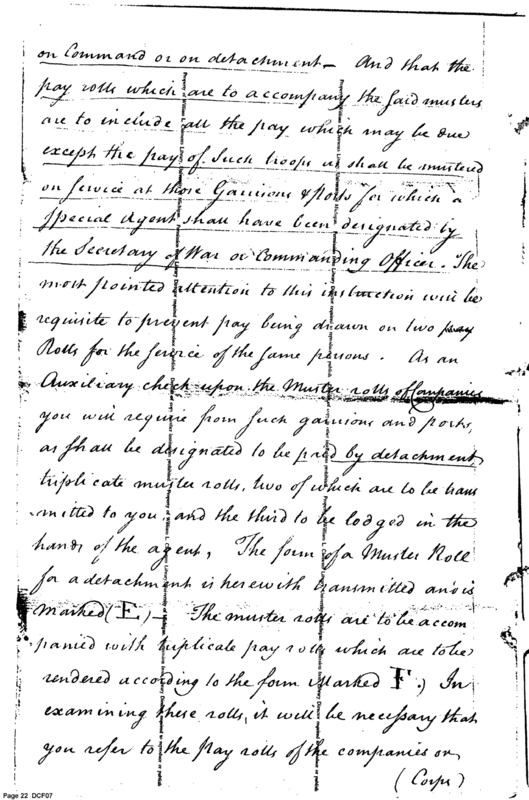 on Command or on detachment – And that the
pay rolls which are to accompany the said musters
are to include all the pay which may be due
except the pay of such troops as shall be mustered
on service at those Garrisons & Posts for which a
special Agent shall have been designated by
the Secretary of War or Commanding Officer. The
most pointed attention to this instruction will be
requisite to prevent pay being drawn on two pay
Rolls for the service of the same persons. As an
Auxiliary check upon the Muster rolls of Companies
you will require from such garrisons and posts,
as shall be designated to be paid by detachment
triplicate muster rolls, two of which are to be trans
mitted to you, and the third to be lodged in the
hands of the agent, The form of a Muster Roll
for a detachment is herewith transmitted and is
marked (E) – The muster rolls are to be accom
panied with triplicate pay rolls which are to be
rendered according to the form Marked F.) In
examining these rolls, it will be necessary that
you refer to the pay rolls of the companies or
(Corps)
Page 22 DCF07